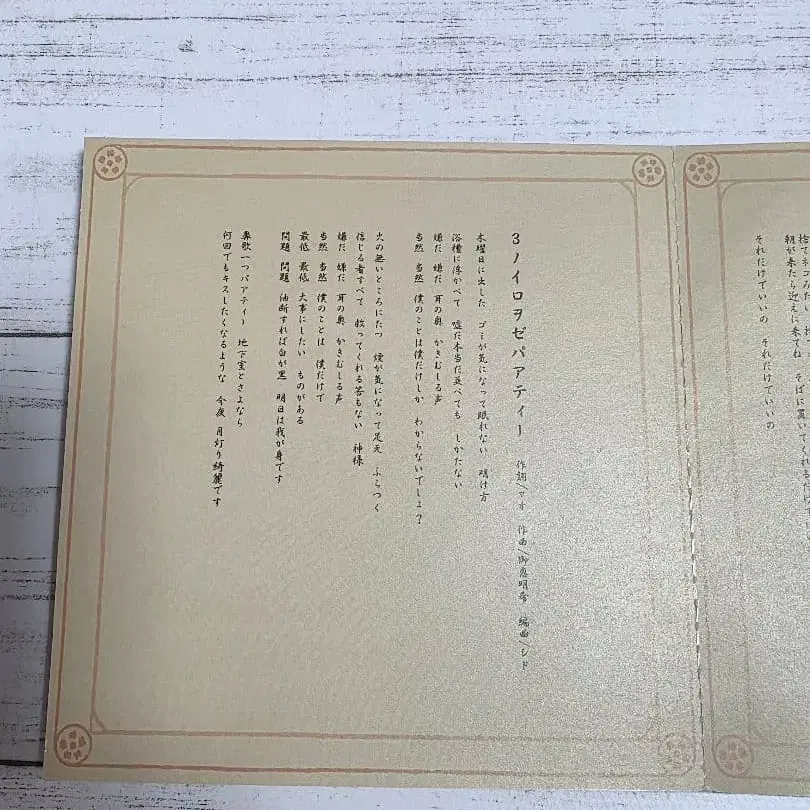 捨てネコみたいに
朝が来たら迎えに来てね そばに置いてくれるだ
それだけでいいの それだけでいいの
3 ノイロヲゼパアティー 作詞/マオ 作曲/御恵明希 編曲/シド
木曜日に出した ゴミが気になって眠れない 明け方
浴槽に浮かべて 嘘だ本当だ並べても しかたない
嫌だ 嫌だ 耳の奥 かきむしる声
当然 当然 僕のことは僕だけしか わからないでしょ?
火の無いところにたつ 煙が気になって足元 ふらつく
信じる者すべて 救ってくれる筈もない 神様
嫌だ 嫌だ 耳の奥 かきむしる声
当然 当然 僕のことは 僕だけで
最低 最低 大事にしたい ものがある
問題 問題 油断すれば白が黒 明日は我が身です
鼻歌一つパアティー 地下室とさよなら
何回でもキスしたくなるような 今夜 月灯り綺麗です